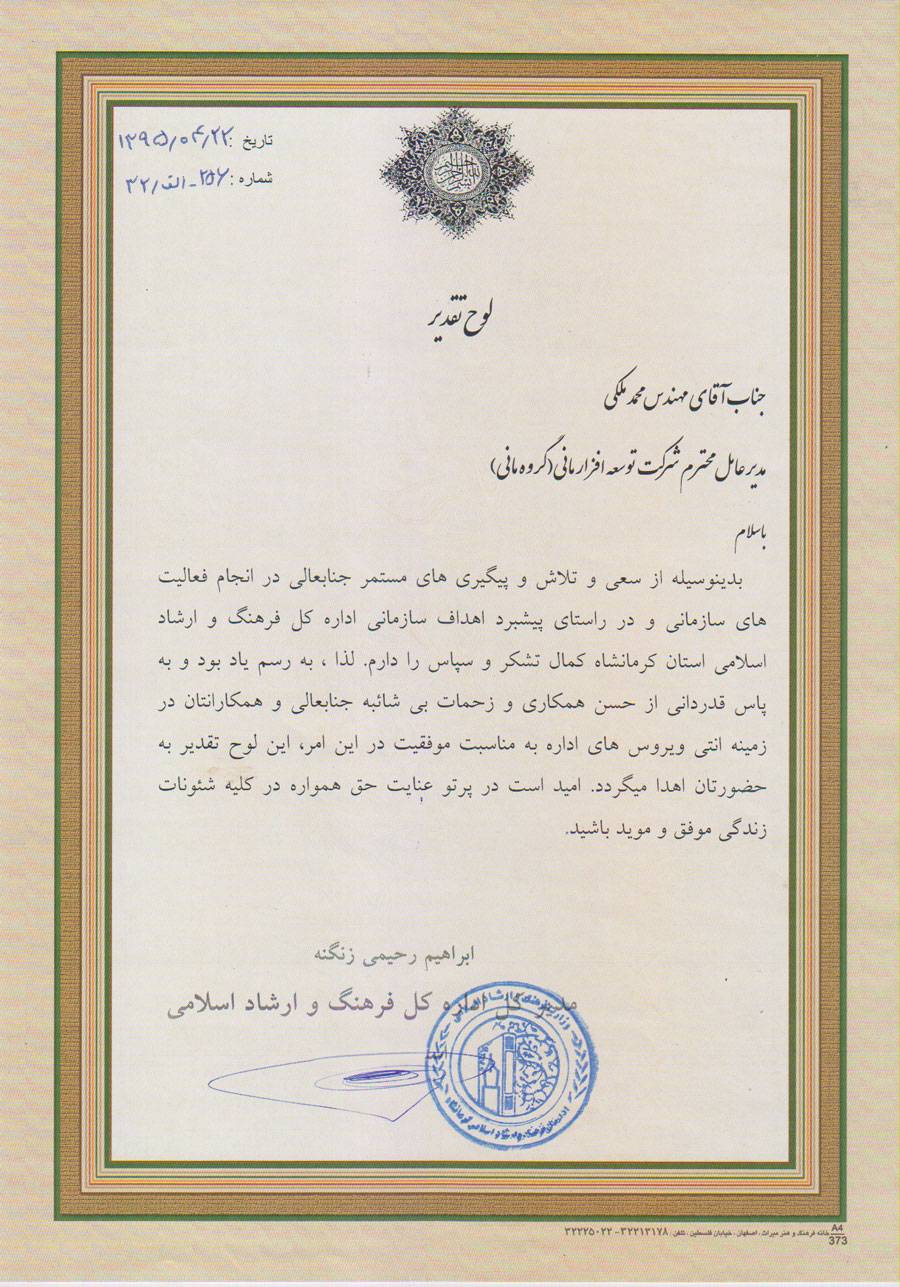 تاریخ: ۱۳۹۵/۰۴/۲۲
شماره: ۲۵۶-الف/۳۲
لوح تقدیر
جناب آقای مهندس محمد ملکی
مدیرعامل محترم شرکت توسعه افزار مانی (گروه مانی)
باسلام
بدینوسیله از سعی و تلاش و پیگیری های مستمر جنابعالی در انجام فعالیت
های سازمانی و در راستای پیشبرد اهداف سازمانی اداره کل فرهنگ و ارشاد
اسلامی استان کرمانشاه کمال تشکر و سپاس را دارم. لذا ، به رسم یاد بود و به
پاس قدردانی از حسن همکاری و زحمات بی شائبه جنابعالی و همکارانتان در
زمینه انتی ویروس های اداره به مناسبت موفقیت در این امر، این لوح تقدیر به
حضورتان اهدا میگردد. امید است در پرتو عنایت حق همواره در کلیه شئونات
زندگی موفق و موید باشید.
ابراهیم رحیمی زنگنه
مدیر کل اداره کل فرهنگ و ارشاد اسلامی
وزارت فرهنگ و ارشاد اسلامی
اداره کل فرهنگ و ارشاد اسلامی کرمانشاه
خانه فرهنگ و هنر میراث، اصفهان، خیابان فلسطین، تلفن: ۳۲۲۱۳۱۷۸-۳۲۲۲۵۰۲۲
A4
373